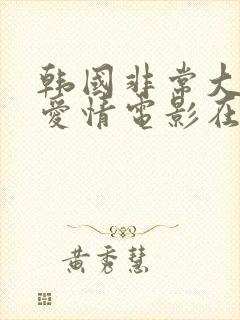 韩國非常大
愛情電影在
黄秀慧